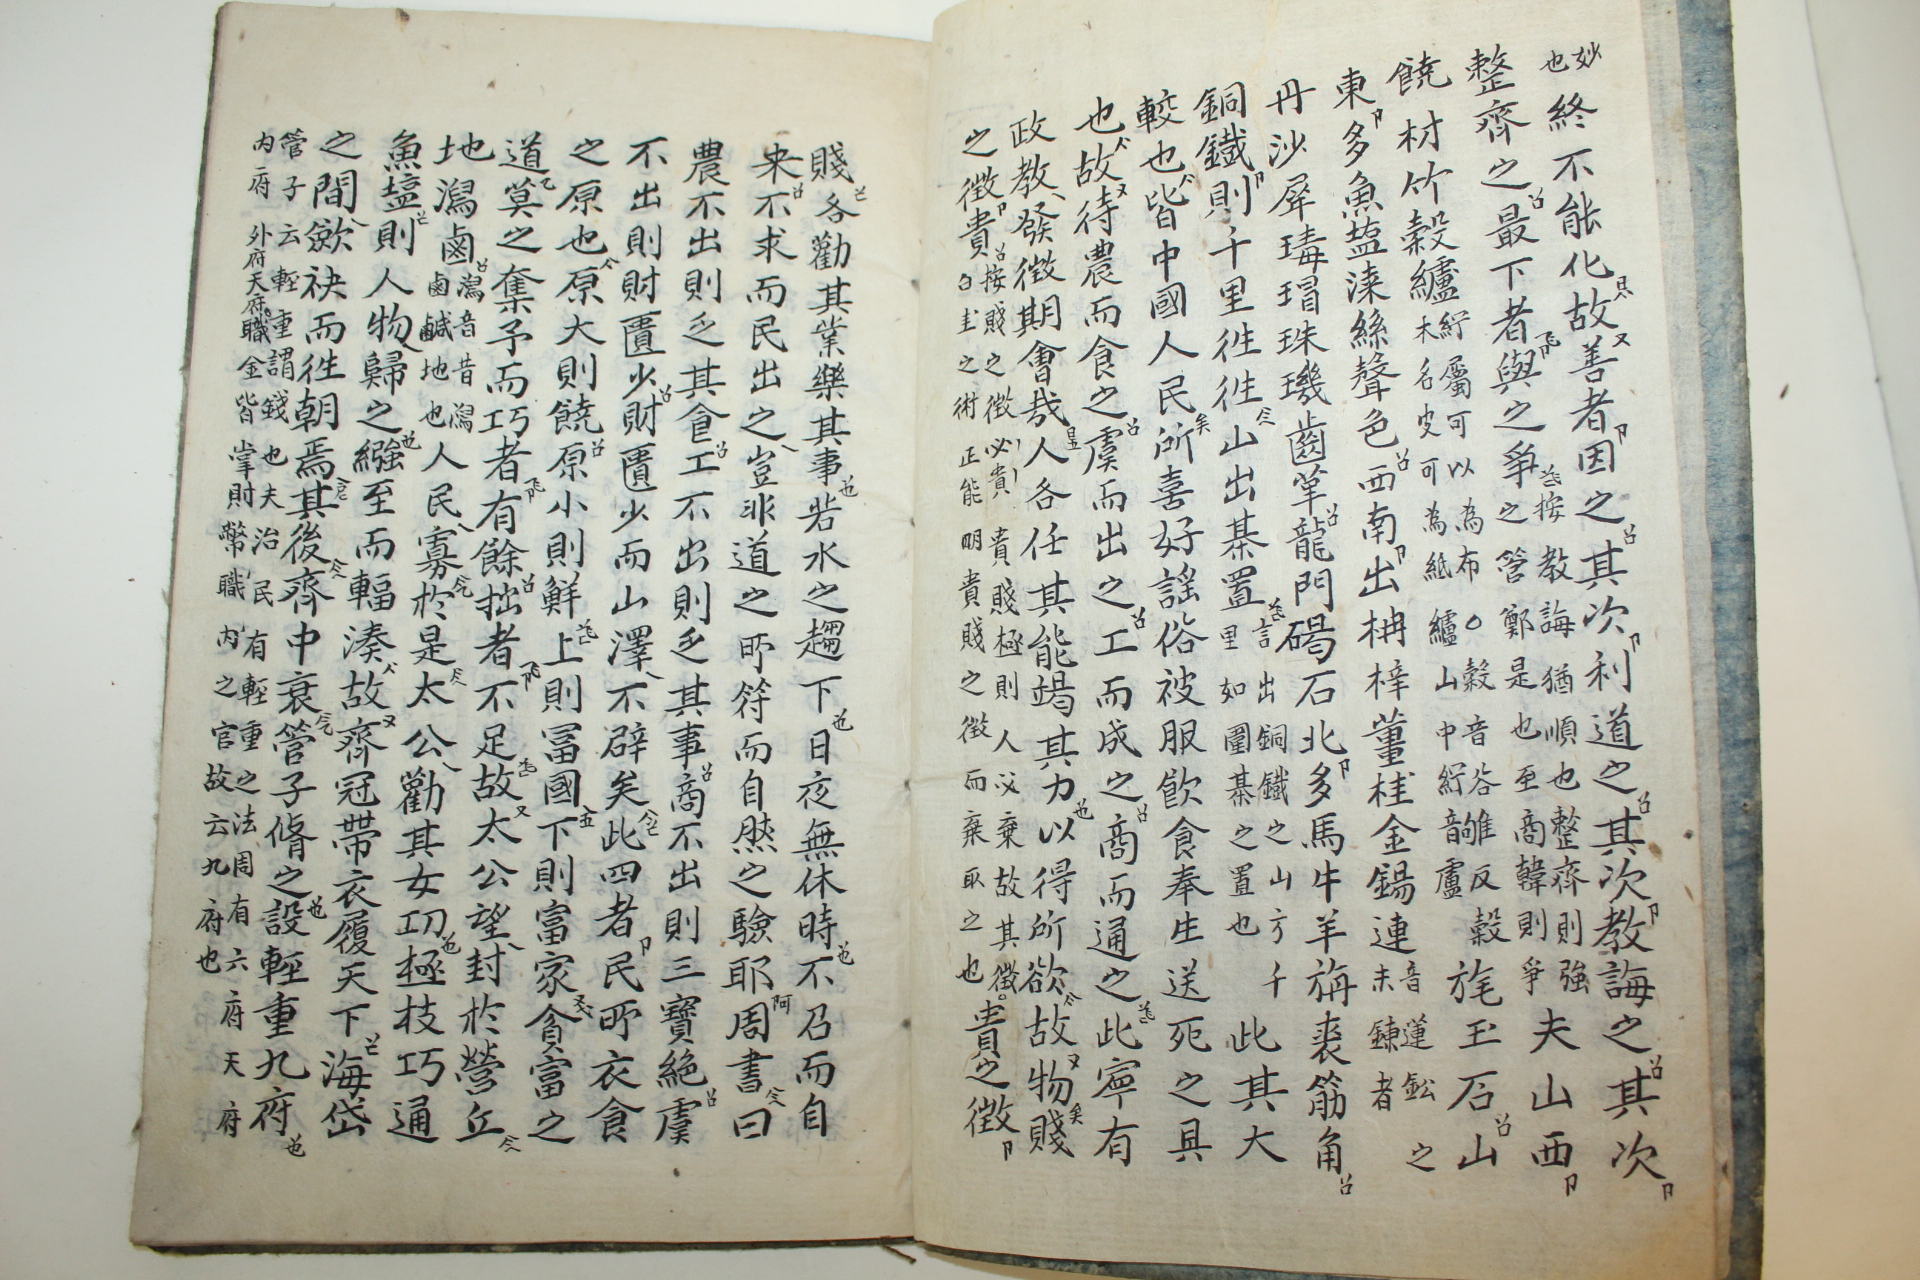 妙也終不能化故善者因之其次利道之其次教誨之其次
整齊之最下者與之爭按教誨猶順也整齊則強之管鄭是也至商韓則爭夫山西
饒材竹穀纑紵屬可以為布○穀音谷雊反穀木名皮可為紙纑山中紵韻盧旄玉石山
東多魚塩漆絲聲色西南出枏梓薑桂金錫連音蓮鈆之未鍊者
丹沙犀瑇瑁珠璣齒革龍門碣石北多馬牛羊旃裘筋角
銅鐵則千里徃徃山出棊置言出銅鐵之山方千里如圍棊之置也此其大
較也皆中國人民所喜好謠俗被服飲食奉生送死之具
也故待農而食之虞而出之工而成之商而通之此寧有
政教發徴期會哉人各任其能竭其力以得所欲故物賤
之徴貴按賤之徴必貴貴賤極則人必棄故其徴白圭之術正能明貴賤之徴而棄取之也貴之徴
賤各勸其業樂其事若水之趨下日夜無休時不召而自
来不求而民出之豈非道之所符而自然之驗耶周書曰
農不出則乏其食工不出則乏其事商不出則三寶絶虞
不出則財匱少財匱少而山澤不辟矣此四者民所衣食
之原也原大則饒原小則鮮上則冨國下則富家貧富之
道莫之奪予而巧者有餘拙者不足故太公望封於營丘
地潟鹵潟音昔潟鹵鹹地也人民寡於是太公勸其女功極技巧通
魚塩則人物歸之繦至而輻湊故齊冠帶衣履天下海岱
之間歛袂而徃朝焉其後齊中衰管子脩之設輕重九府
管子云輕重謂錢也夫治民有輕重之法周有六府天府
内府外府天府職金皆掌財幣職内之官故云九府也